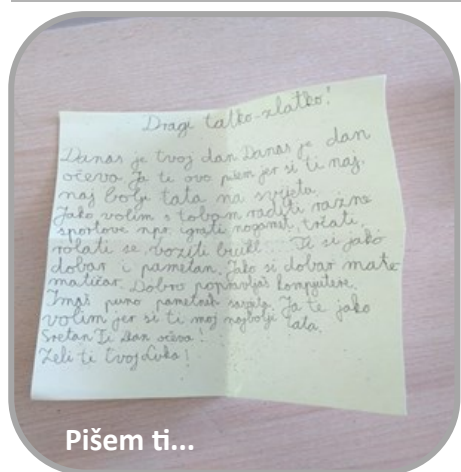 Dragi tatko-zlatko!
Danas je tvoj dan. Danas je dan
očeva. Ja ti ovo pišem jer si ti naj,
naj bolji tata na svijetu.
Jako volim s tobom raditi razne
sportove npr. igrati nogomet, trčati,
rolati se, voziti bicikl... Ti si jako
dobar i pametan. Jako si dobar mate-
matičar. Dobro popravljaš kompjutere.
Imaš puno pametnih savjeta. Ja te jako
volim jer si ti moj najbolji tata.
Sretan Ti Dan očeva!
Želi ti tvoj Luka!
Pišem ti...